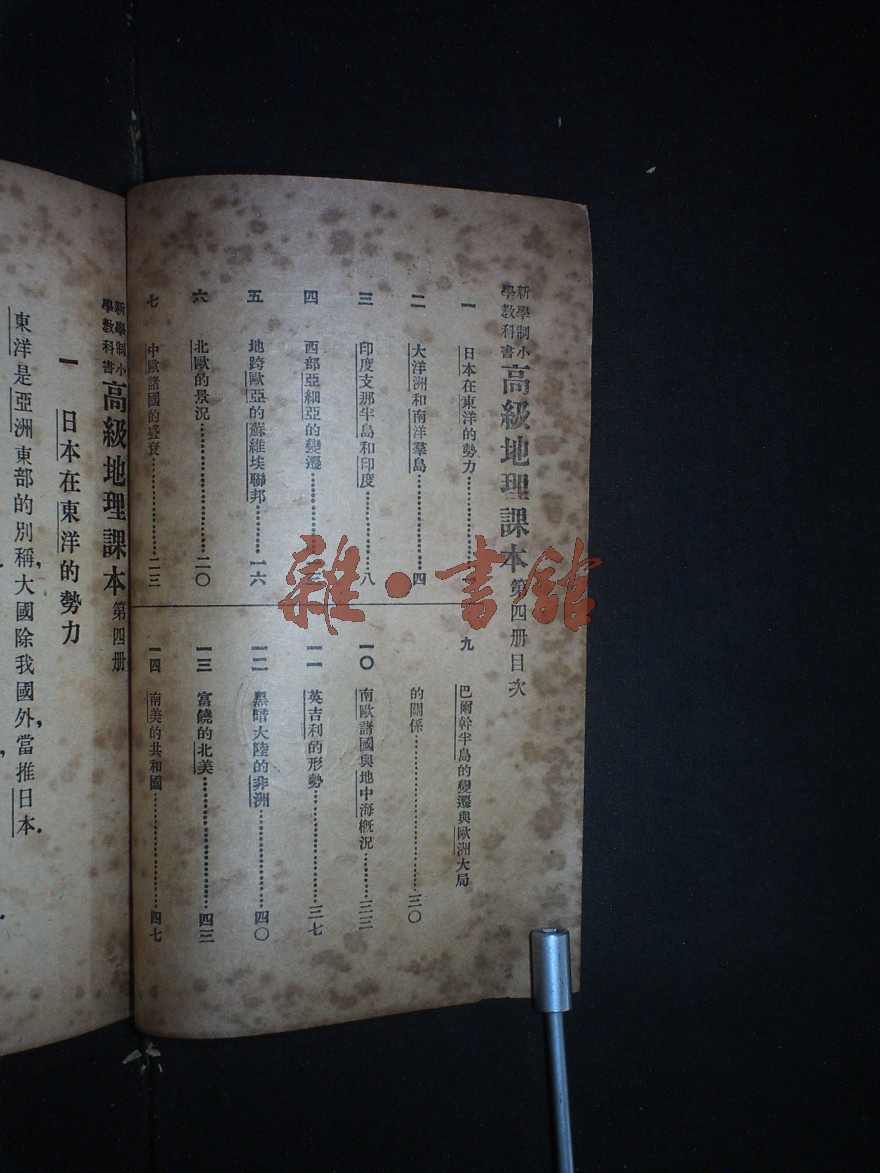 新學制小
學教科書
高級地理課本第四册目次
一 日本在東洋的勢力
二 大洋洲和南洋羣島 四
三 印度支那半島和印度 八
四 西部亞細亞的變遷
五 地跨歐亞的蘇維埃聯邦 一六
六 北歐的景況 二〇
七 中歐諸國的盛衰 二三
九 巴爾幹半島的變遷與歐洲大局
的關係 三〇
一〇 南歐諸國與地中海概況 三三
一一 英吉利的形勢 三七
一二 黑暗大陸的非洲 四〇
一三 富饒的北美 四三
一四 南美的共和國 四七
新學制小
學教科書
高級地理課本第四册
一 日本在東洋的勢力
東洋是亞洲東部的別稱，大國除我國外，當推日本．
雜·書館